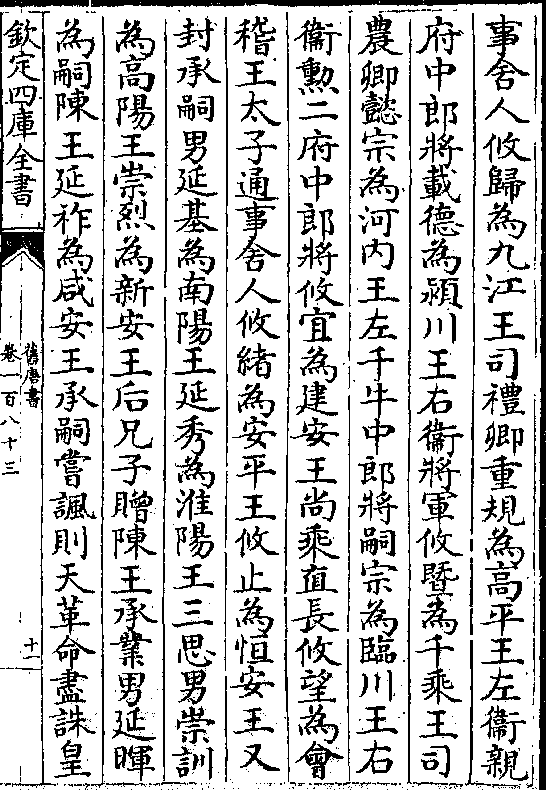 事舍人攸歸為九江王司禮卿重規為高平王左衞親
府中郎將載德為潁川王右衞將軍攸暨為千乘王司
農卿懿宗為河内王左千牛中郎將嗣宗為臨川王右
衞勲二府中郎將攸宜為建安王尚乘直長攸望為會
稽王太子通事舍人攸緒為安平王攸止為恒安王又
封承嗣男延基為南陽王延秀為淮陽王三思男崇訓
為高陽王崇烈為新安王后兄子贈陳王承業男延暉
為嗣陳王延祚為咸安王承嗣嘗諷則天革命盡誅皇
欽定四庫全書
舊唐書
卷一百八十三
十一